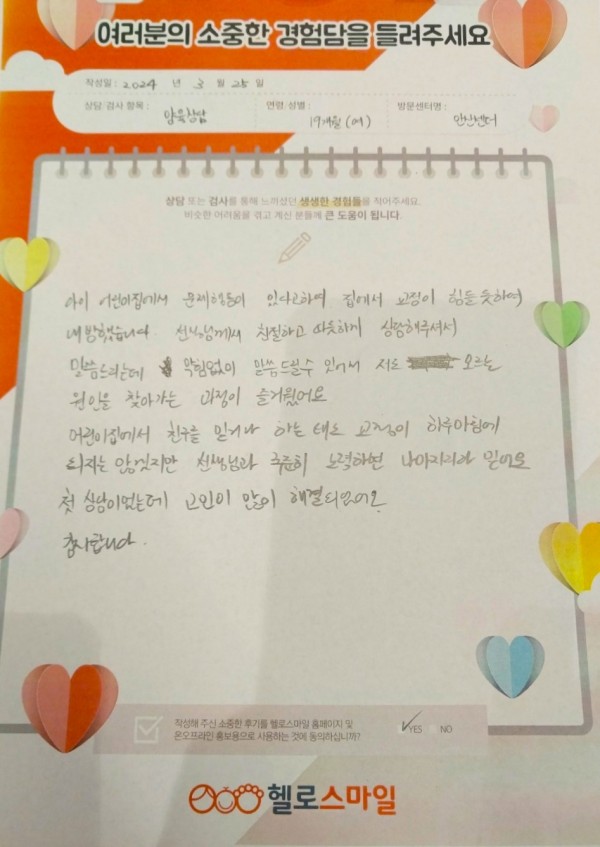 여러분의 소중한 경험담을 들려주세요
작성일 : 2024 년 3 월 25 일
상담/검사 항목 : 양육상담 연령/성별 : 19개월(여) 방문센터명 : 안산센터
상담 또는 검사를 통해 느끼셨던 생생한 경험들을 적어주세요.
비슷한 어려움을 겪고 계신 분들께 큰 도움이 됩니다.
아이 어린이집에서 문제행동이 있다고하여 집에서 교정이 힘들듯하여
내방했습니다 선생님께서 친절하고 따듯하게 상담해주셔서
말씀드리는데 막힘없이 말씀드릴수 있어서 저도 모르는
원인을 찾아가는 과정이 즐거웠어요
어린이집에서 친구를 밀거나 하는 태도 교정이 하루아침에
되지는 않겠지만 선생님과 꾸준히 노력하면 나아지리라 믿어요
첫 상담이었는데 고민이 많이 해결되었어요
감사합니다.
작성해 주신 소중한 후기를 헬로스마일 홈페이지 및
온오프라인 홍보용으로 사용하는 것에 동의하십니까? YES NO
헬로스마일